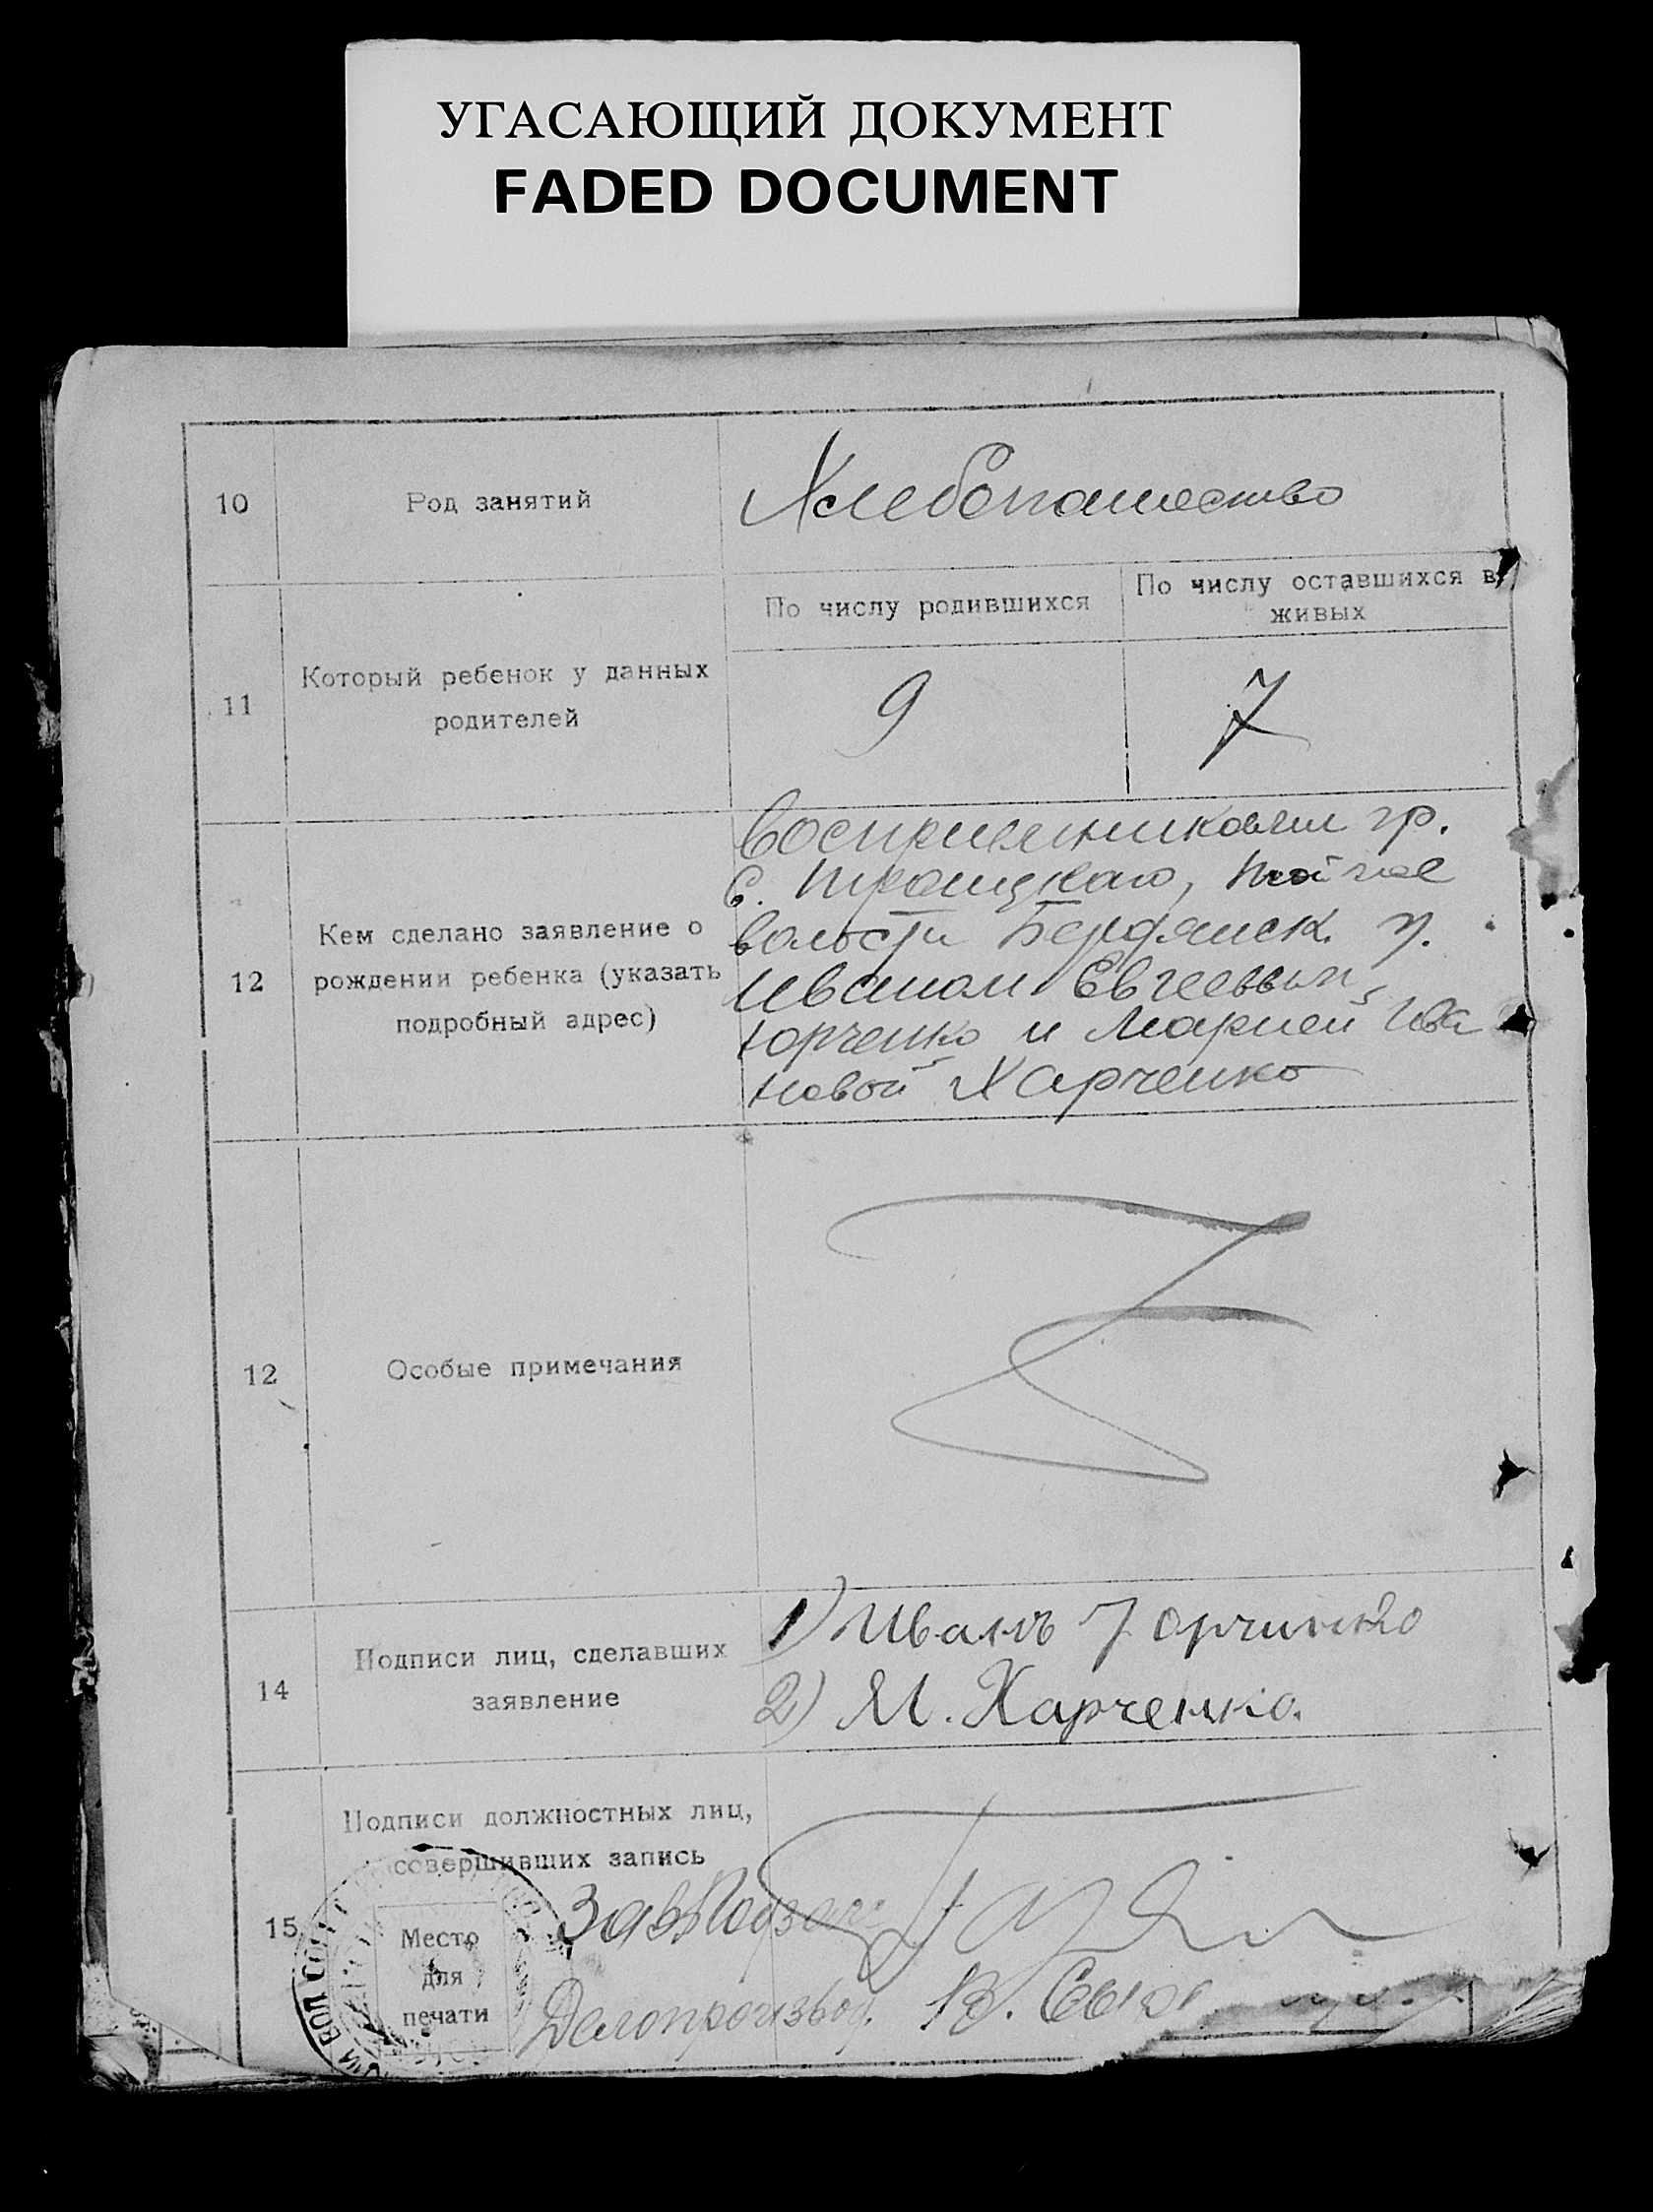 УГАСАЮЩИЙ ДОКУМЕНТ
FADED DOCUMENT
10
Род занятий
Хлебопашество
11
Который ребенок у данных
родителей
По числу родившихся
По числу оставшихся в
живых
9
7
12
Кем сделано заявление о
рождении ребенка (указать
подробный адрес)
Восприемниками гр.
с. Троицкаго, той же
волости Бердянск. у.
Иваном
Юрченко и Марией Ива
новой Харченко
12
Особые примечания
14
Подписи лиц, сделавших
заявление
1) Иванъ Юрчинко
2) М. Харченко.
15
Подписи должностных лиц,
совершивших запись
Место
для
печати
ВОЛ
Делопроизвод. В.